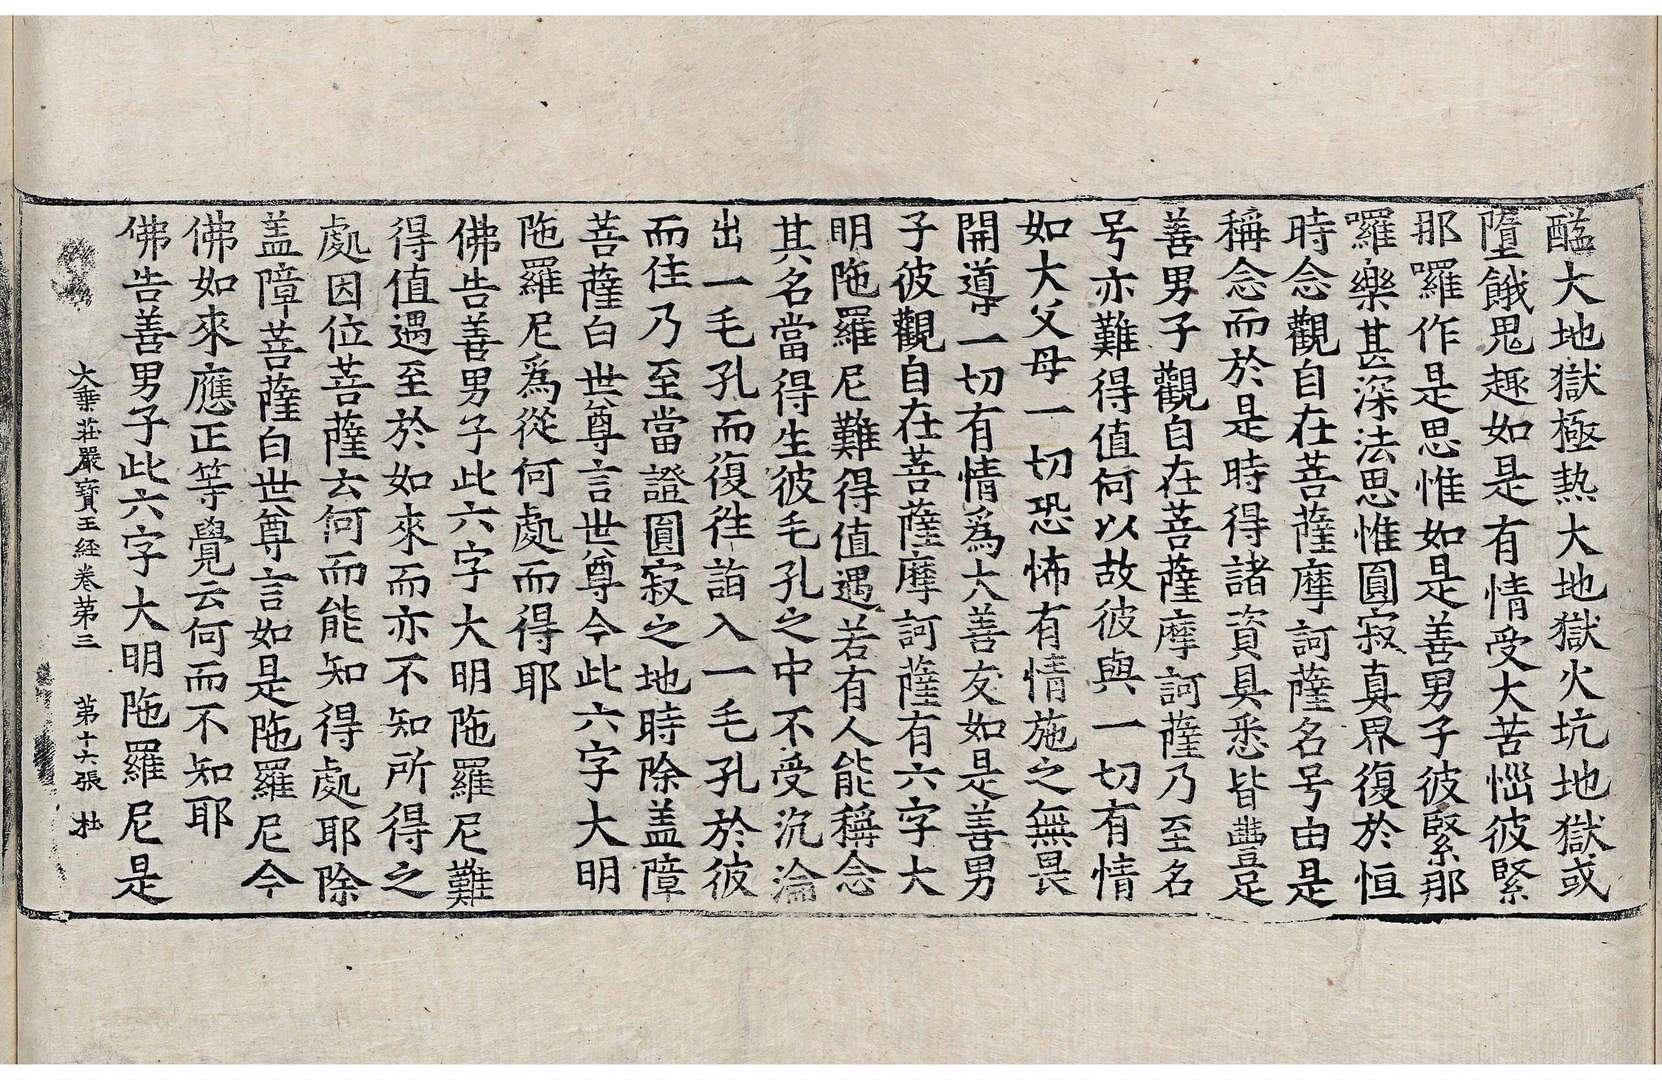 醯大地獄極熱大地獄火坑地獄或
墮餓鬼趣如是有情受大苦惱彼緊
那囉作是思惟如是善男子彼緊那
囉樂甚深法思惟圓寂真界復於恒
時念觀自在菩薩摩訶薩名号由是
稱念而於是時得諸資具悉皆豊足
善男子觀自在菩薩摩訶薩乃至名
号亦難得值何以故彼與一切有情
如大父母一切恐怖有情施之無畏
開導一切有情為大善友如是善男
子彼觀自在菩薩摩訶薩有六字大
明陁羅尼難得值遇若有人能稱念
其名當得生彼毛孔之中不受沉淪
出一毛孔而復徃詣入一毛孔於彼
而住乃至當證圓寂之地時除盖障
菩薩白世尊言世尊今此六字大明
陁羅尼爲從何處而得耶
佛告善男子此六字大明陁羅尼難
得值遇至於如來而亦不知所得之
處因位菩薩云何而能知得處耶除
盖障菩薩白世尊言如是陁羅尼今
佛如來應正等覺云何而不知耶
佛告善男子此六字大明陁羅尼是
大乗莊嚴寶王經卷第三 第十六張 杜